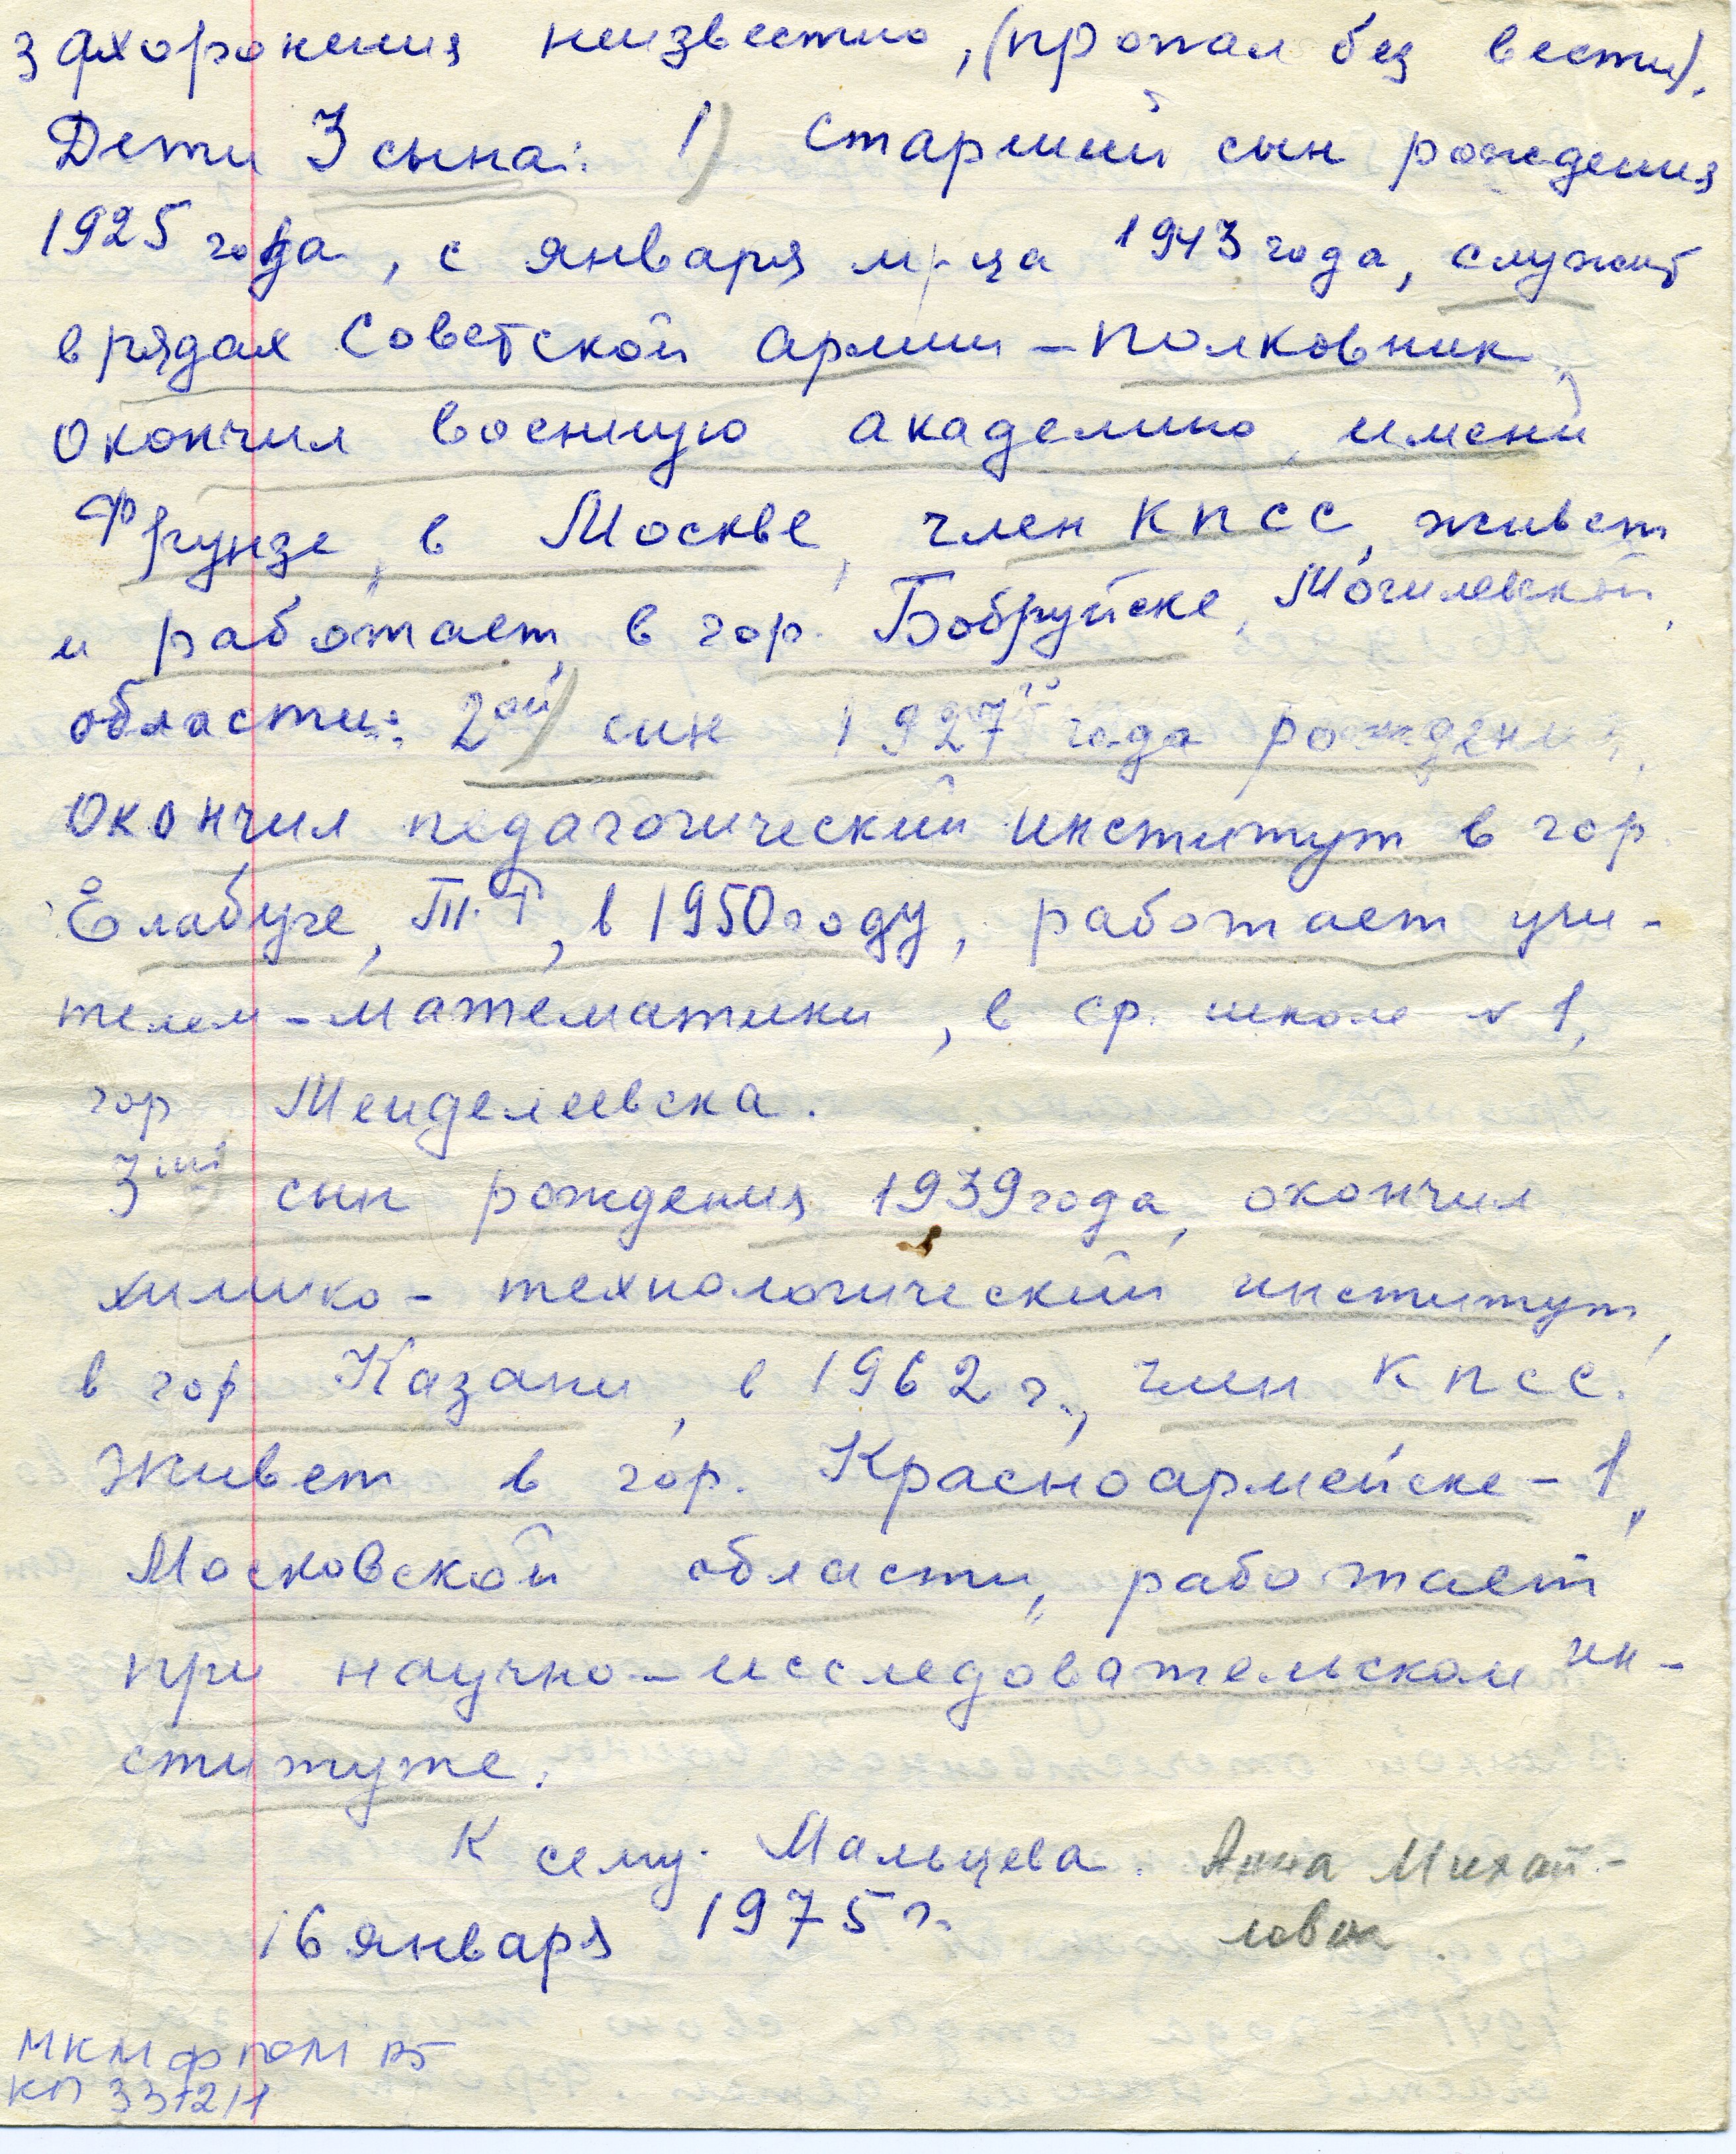 захоронения неизвестно, (пропал без вести).
Дети 3 сына: 1) Старший сын рождения
1925 года, с января м-ца 1943 года, служит
в рядах Советской армии - полковник,
окончил военную академию, имени
Фрунзе, в Москве, член КПСС, живет
и работает, в гор. Бобруйске, Могилевской,
области: 2ой) сын 1927го года рождения,
Окончил педагогический институт в гор
Елабуге, Т.Т, в 1950 году, работает учи-
телем - математики, в ср. школе N 1,
гор Менделеевска.
3ий) сын рождения 1939 года, окончил
химико-технологический институт,
в гор Казани, в 1962 г., член КПСС.
Живет в гор. Красноармейске-1,
Московской области, работает
при научно-исследовательском ин-
ституте.
К сему. Мальцева. Анна Михай-
ловна.
16 января 1975 г.
МКМ ф ПОМ
КП 3372/1